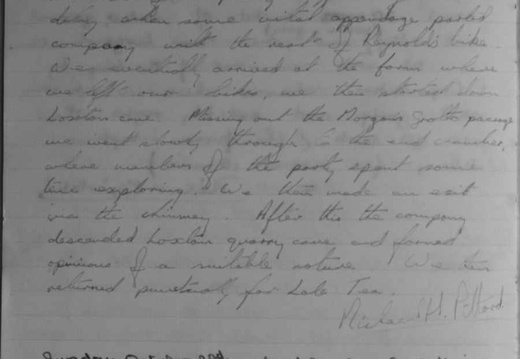 delay when some vital appendage parted
company with the rest of Reynold's bike.
We eventually arrived at the farm where
we left our bikes, we then started down
Loxton cave. Missing out the Morgans Grotto passage
we went slowly through to the end chamber,
where members of the party spent some
time exploring. We then made an exit
via the chimney. After this the company
descended Loxton quarry cave and formed
opinions of a suitable nature. We then
returned punctually for Late Tea.
Richard H.